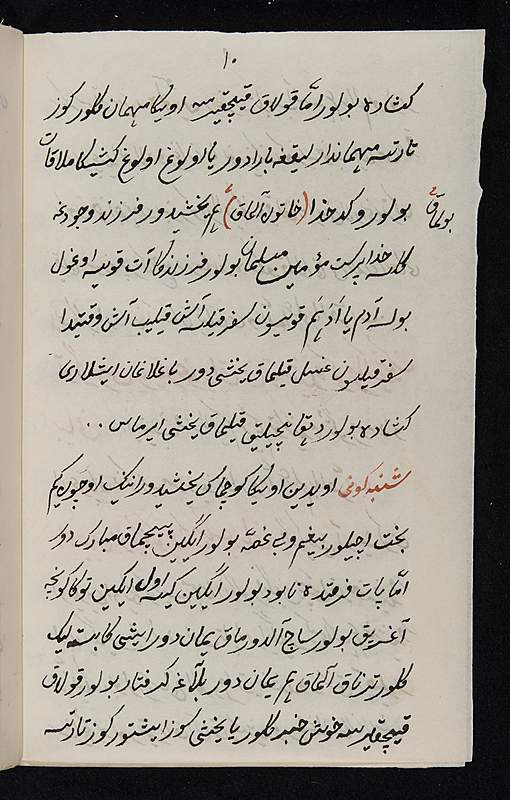 ۱۰
کشاده بولور امّا قولاق قیچقیرسه اویکا مهمان کلور کوز
تارتسه مهماندارلیقغه بارادور یا اولوغ اولوغ کشیکا ملاقات
بولماق
بولور و کدخدا (خاتون آلماق) هم یخشیدور فرزند وجودغه
کلسه خداپرست مؤمین مسلمان بولور فرزندکا آت قویسه اوغول
بولسه آدم یا ادهم قویسون سفر قیلسه آش قیلیب آش وقتیدا
سفر قیلسون غسل قیلماق یخشی دور باغلانغان ایشلاری
کشاده بولور دهقانچیلیق قیلماق یخشی ایرماس ..
شنبه کونی اویدین اویکا کوچماک یخشیدور انینک اوچون کیم
بخت اچیلور بیغم و بی غصّه بولور ایکین پیچماق مبارک دور
امّا پات فرصتده نابود بولور ایکین کیسه اول ایکین توکاکونچه
آغریق بولور ساچ آلدورماق یمان دور ایشی کا بستلیک
کلور تیرناق آلماق هم یمان دور بلاغه کرفتار بولور قولاق
قیچقیرسه خوش خبر کلور یا یخشی سوز ایشتور کوز تارتسه